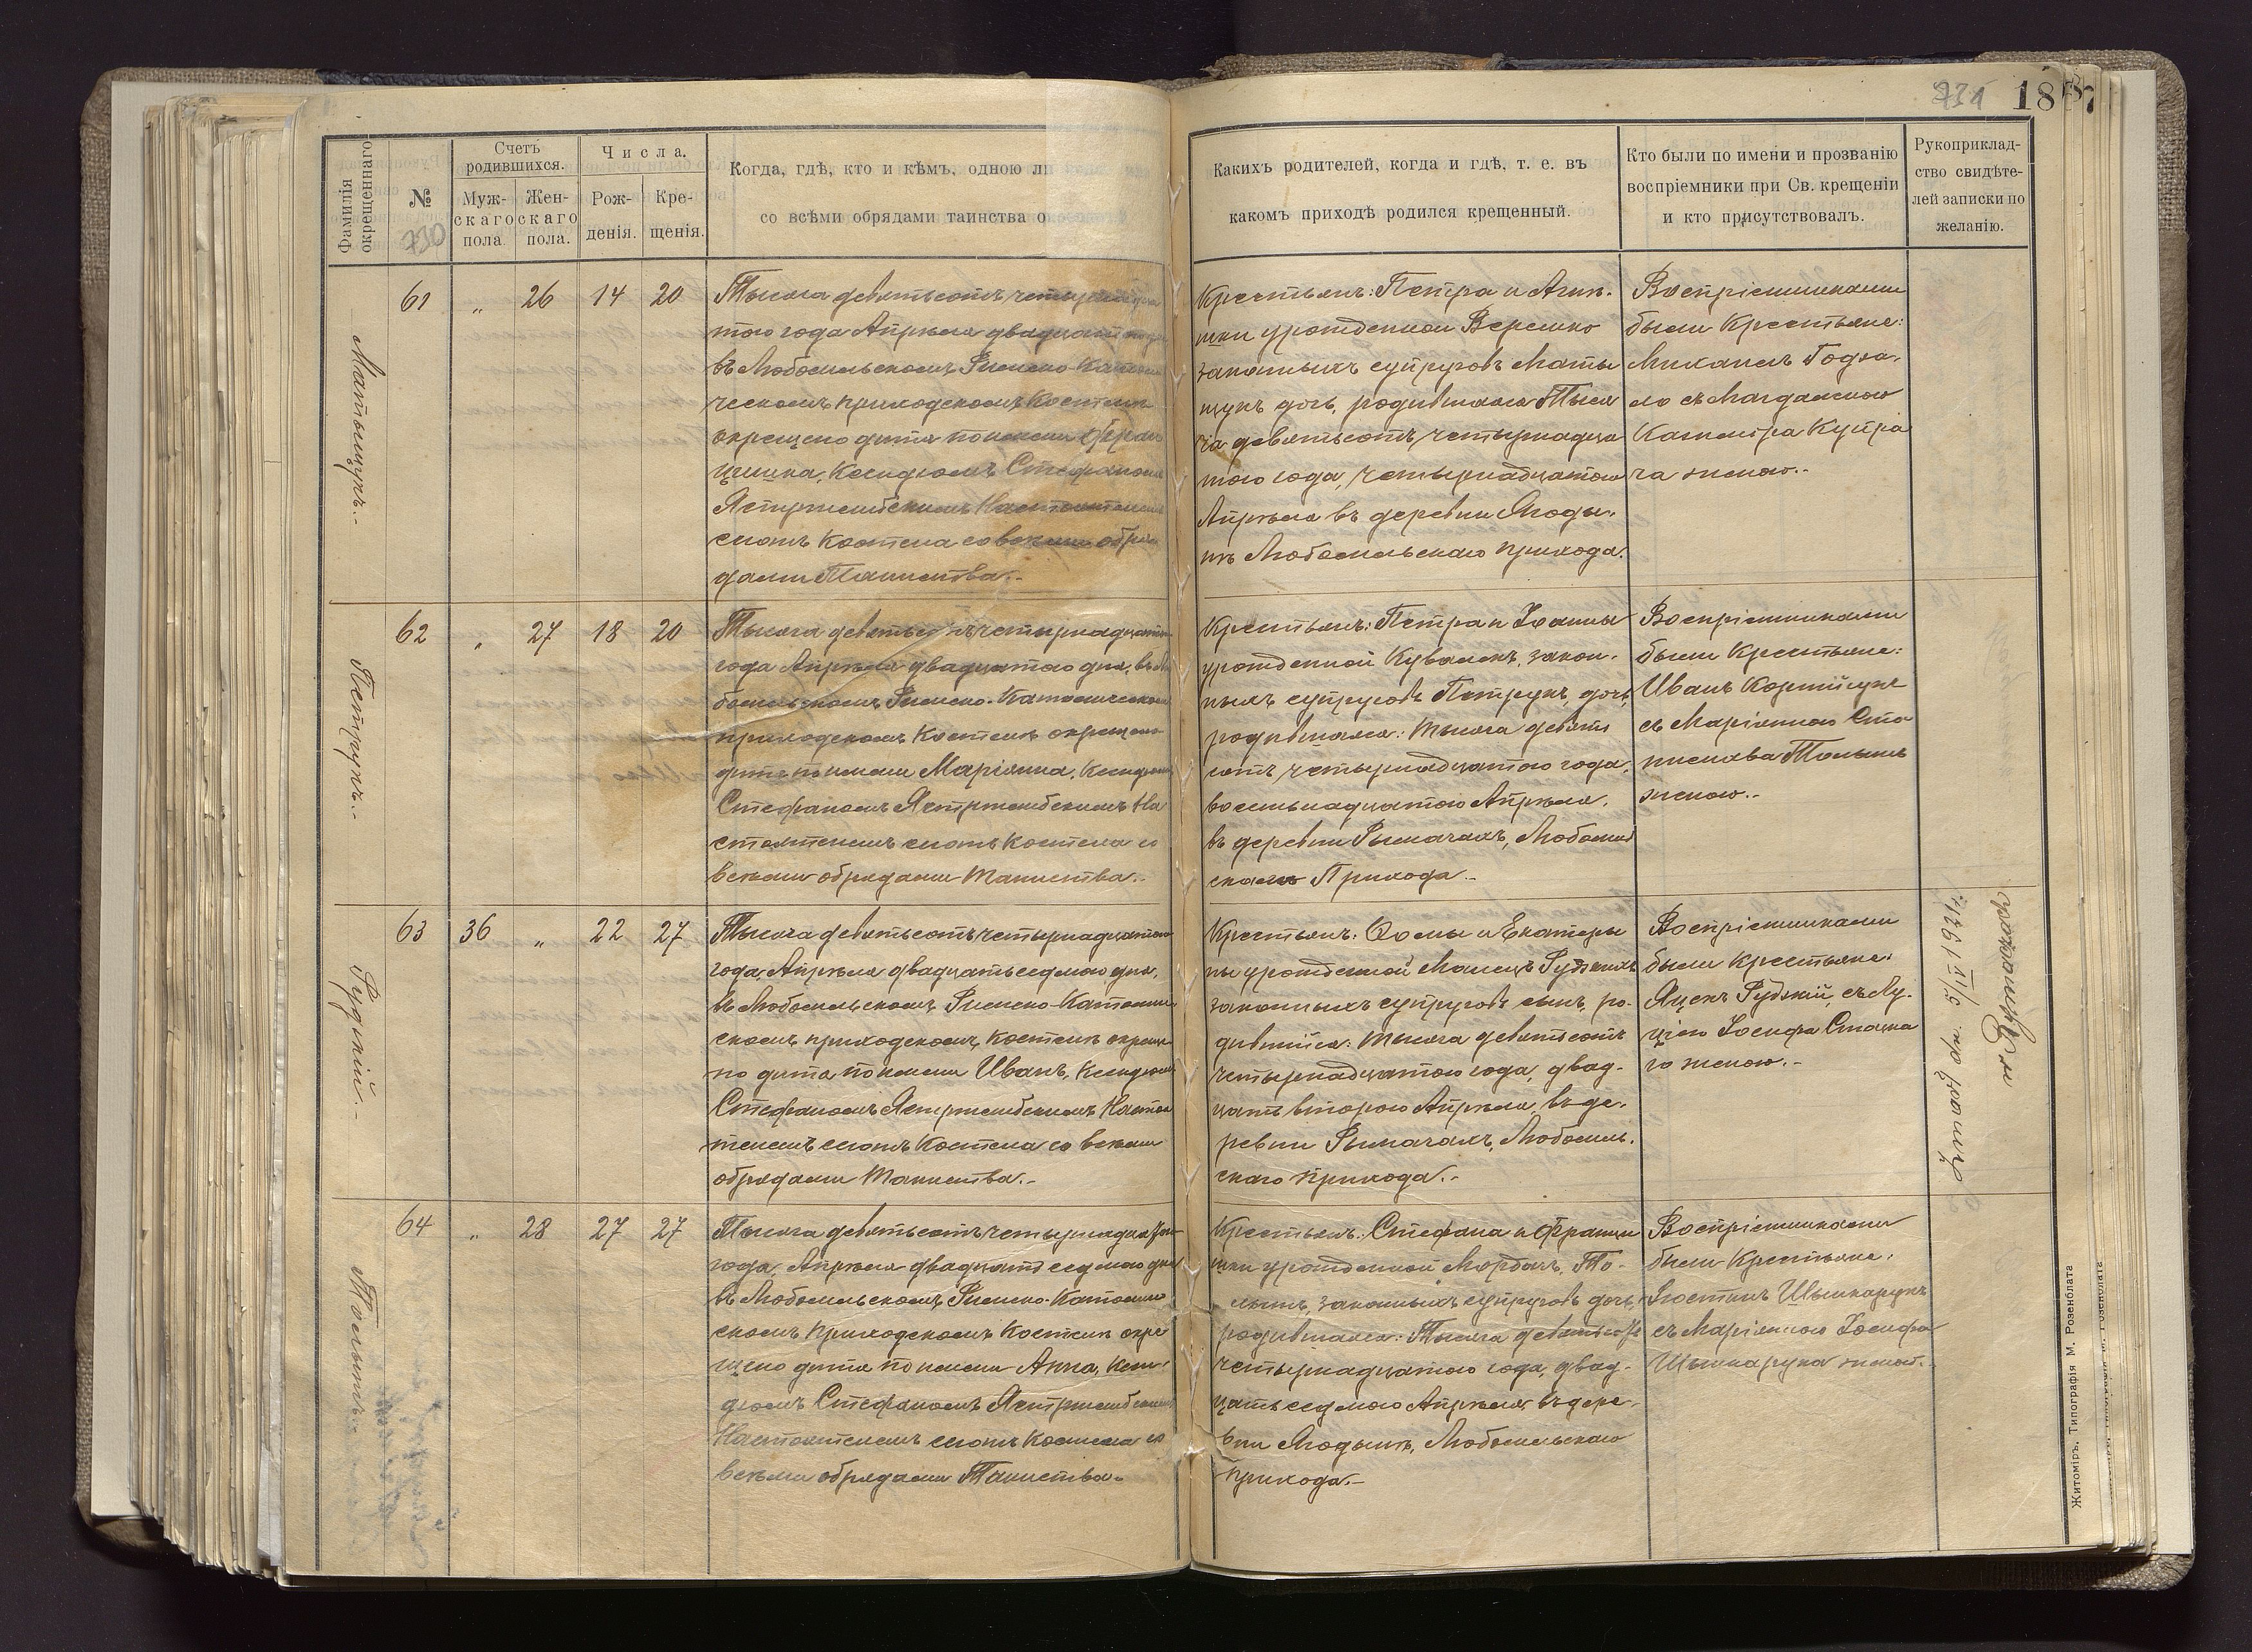 731 187
Фамилія окрещеннаго
№
730
Счетъ родившихся.
Муж-
скаго
пола
Жен-
скаго
пола.
Числа.
Рож-
денія.
Кре-
щенія.
Когда, гдѣ, кто и кѣмъ, одною ли
со всѣми обрядами таинства о
Какихъ родителей, когда и гдѣ, т. е. въ
какомъ приходѣ родился крещенный.
Кто были по имени и прозванію
воспріемники при Св. крещеніи
и кто присутствовалъ.
Рукоприклад-
ство свидѣте-
лей записки по
желанію.
Матыщукъ.-
61 " 26 14 20
Тысяча девятьсотъ четырнадца
того года Апрѣля двадцатаго
въ Любомльскомъ Римско-Католи
ческомъ приходскомъ Костелѣ
окрещено дитя по имени Фран
цишка, Ксендзомъ Стефаномъ
Ястржембскимъ Настоятелемъ
сиотъ Костела со всѣми обря
дами Таинства.-
Крестьянъ: Петра и Агнѣ-
шки урожденной Веремко
законныхъ супруговъ Маты
щукъ дочь, родившаяся Тыся
ча девятьсотъ четырнадца
того года, четырнадцатого
Апрѣля въ деревни Ягоды-
нѣ Любомльскаго прихода.
Воспріемниками
были Крестьяне:
Михаилъ Годла-
ло съ Магдаленою
Казимѣра Купра
ча женою.-
Петрукъ.-
62 " 27 18 20
Тысяча девятьсотъ четырнадцатаго
года Апрѣля двадцатого дня, въ Лю
бомльскомъ Римско-Католическомъ
приходскомъ Костелѣ окрещено
дитя по имени Маріянна, Ксендзомъ
Стефаномъ Ястржембскимъ На
стоятелемъ сиотъ Костела со
всѣми обрядами таинства.-
Крестьянъ: Петра и Іоанны
урожденной Ковалюкъ, закон-
ныхъ супруговъ Петрукъ, дочь,
родившаяся: тысяча девять
сотъ четырнадцатого года,
восемьнадцатого Апрѣля,
въ деревни Рымачахъ, Любомль
скаго Прихода.-
Воспріемниками
были Крестьяне:
Иванъ Корнійчукъ
съ Маріянною Ста
нислава Толышъ
женою.-
Рудзкій.-
63 36 " 22 27
Тысяча девятьсотъ четырнадцатого
года, Апрѣля двадцать седмого дня,
въ Любомльскомъ Римско-Католиче
скомъ приходскомъ Костелѣ окреще
но дитя по имени Иванъ, Ксендзомъ
Стефаномъ Ястржембскимъ Настоя
телемъ сиотъ Костела со всѣми
обрядами таинства.-
Крестьянъ: Ѳомы и Екатери
ны урожденной Малецъ Рудзкихъ
законныхъ супруговъ сынъ, ро-
дившійся: тысяча девятьсотъ
четырнадцатого года, двад-
цать второго Апрѣля, въ де-
ревни Рымачахъ, Любомль-
скаго прихода.-
Воспріемниками
были крестьяне:
Яцекъ Рудзкій, съ Лу-
ціею Іосифа Сташка
го женою.-
Zmarł dn. 5/II 1921 r.
w Rymaczach
Толышъ.
64 " 28 27 27
Тысяча девятьсотъ четырнадцатого
года, Апрѣля двадцать седмого дня
въ Любомльскомъ Римско-Католиче
скомъ приходскомъ Костелѣ окре
щено дитя по имени Анна, Ксен-
дзомъ Стефаномъ Ястржембскимъ
Настоятелемъ сиотъ Костела со
всѣми обрядами Таинства.-
Крестьянъ: Стефана и Франци
шки урожденной Мордасъ, То-
лышъ, законныхъ супруговъ дочь,
родившаяся: Тысяча девятьсотъ
четырнадцатого года, двад-
цать седмого Апрѣля, въ дере-
вни Ягодынѣ, Любомльскаго
прихода.-
Воспріемниками
были Крестьяне:
Іюстинъ Шышкарукъ
съ Маріянною Іосифа
Шышкарука женой.-
Житоміръ. Типографія М. Розенблата